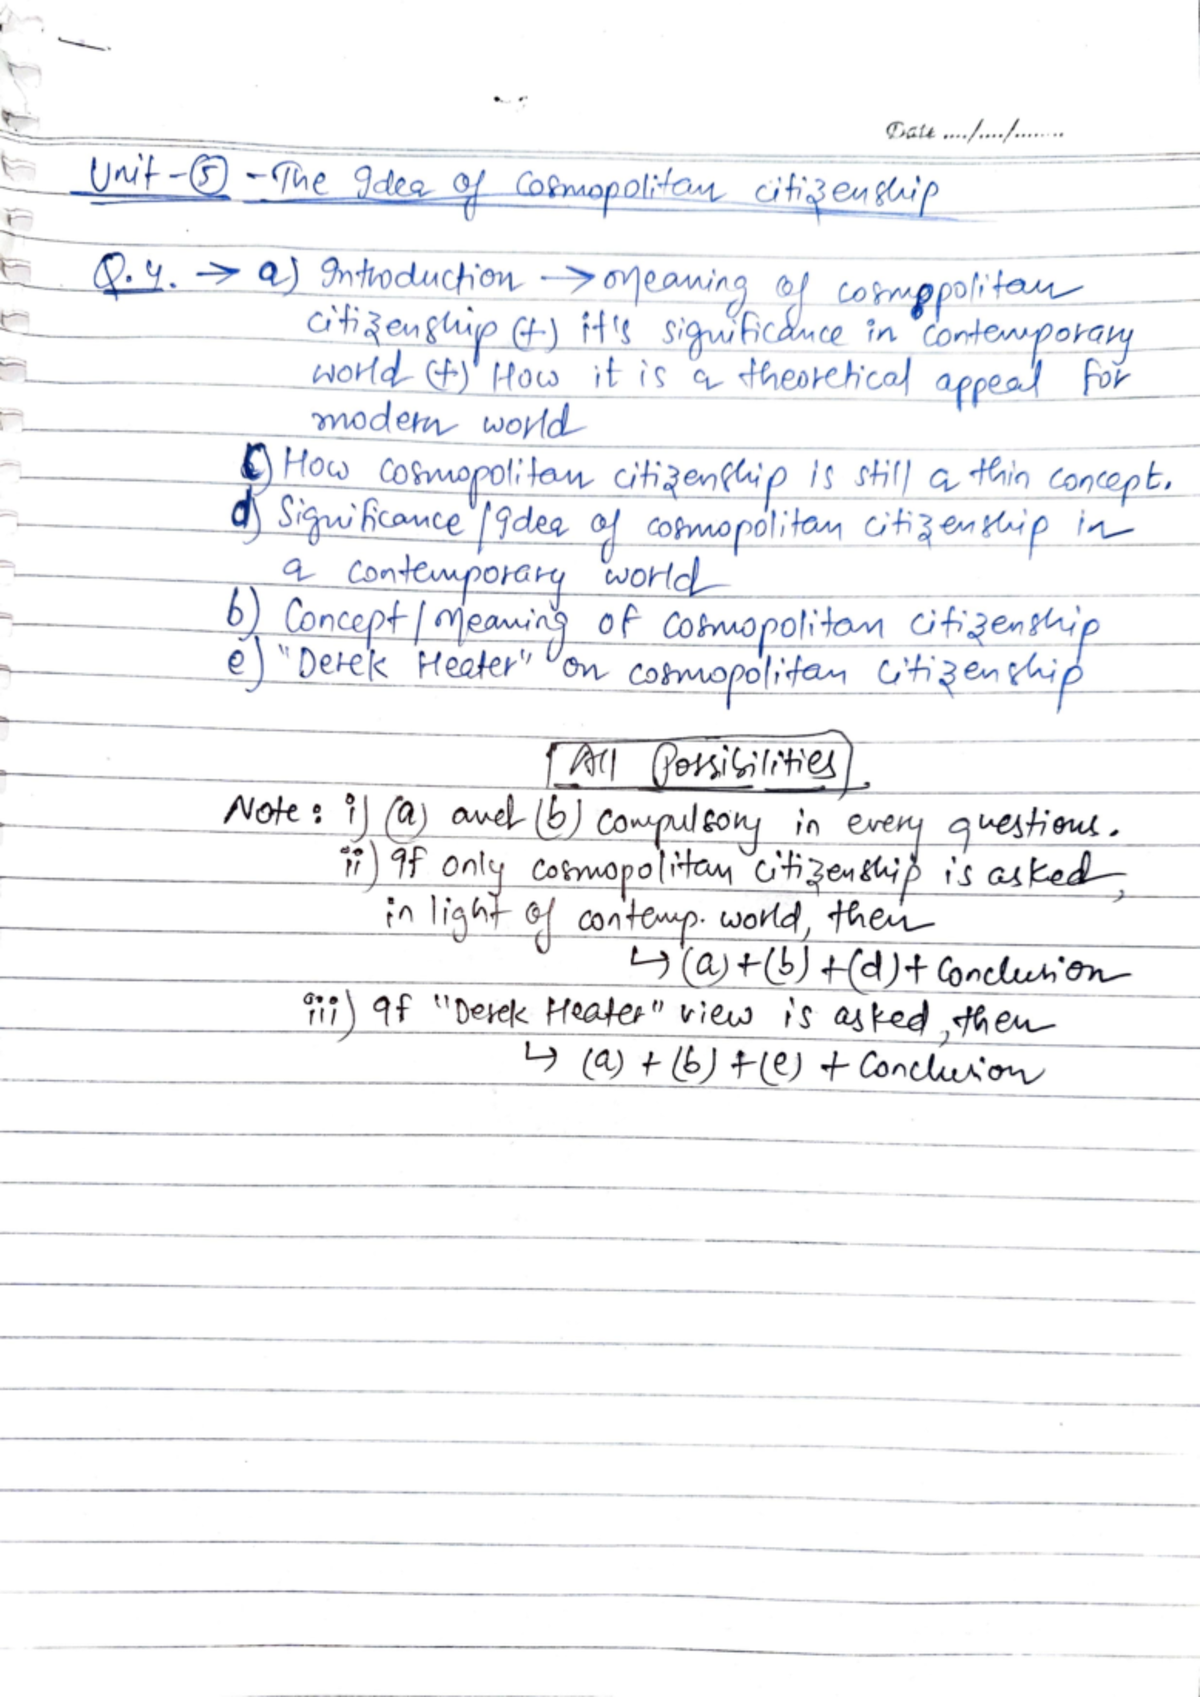 Date ..../..../........
Unit-⑤ - The Idea of Cosmopolitan citizenship
Q.4. → a) Introduction → Meaning of cosmopolitan
citizenship (+) it's significance in contemporary
world (+) How it is a theoretical appeal for
modern world
c) How cosmopolitan citizenship is still a thin concept.
d) Significance / Idea of cosmopolitan citizenship in
a contemporary world
b) Concept / Meaning of cosmopolitan citizenship
e) "Derek Heater" on cosmopolitan citizenship
All Possibilities
Note: i) (a) and (b) compulsory in every questions.
ii) If only cosmopolitan citizenship is asked,
in light of contemp. world, then
↳ (a) + (b) + (d) + Conclusion
iii) If "Derek Heater" view is asked, then
↳ (a) + (b) + (e) + Conclusion